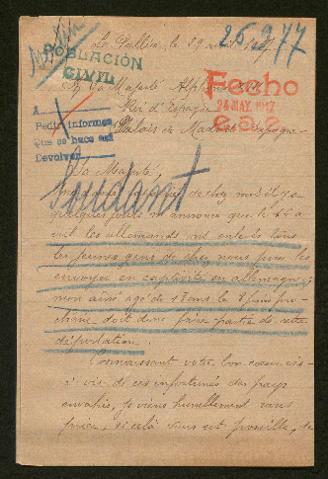 26.977
POBLACIÓN
CIVIL
La Pallice, le 19
Sa Majesté Alphonse XIII
Roi d'Espagne
Palais de Madrid Espagne
Fecho
24 MAY. 1917
A
Pedir informes
Que se hace así
Devolver
Sa Majesté,
de chez moi il y a
quelques jours m'annonce que le
les allemands ont enlevé tous
les jeunes gens de chez nous pour les
envoyer en captivité en allemagne
mon aîné agé de 17 ans le 8 juin pro-
chain, doit donc faire partie de cette
déportation.
Connaissant votre bon coeur vis-
à-vis de ces infortunés des pays
envahis, je viens humblement vous
prier, si celà vous est possible, de